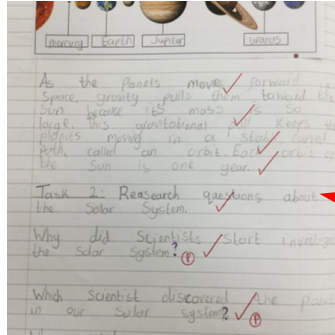 mercury Earth Jupiter uranus
As the Planets moves forward in
Space, gravity pulls them toward the
Sun because its mass is so
large. this gravitational pull keeps the
planets moving in a stable curved
Path, called an orbit. Each orbit
the Sun is one year.
Task 2: Reasearch questions about
the Solar System.
Why did Scientists start
the Solar System?
Which Scientist discovered the
in our Solar system?